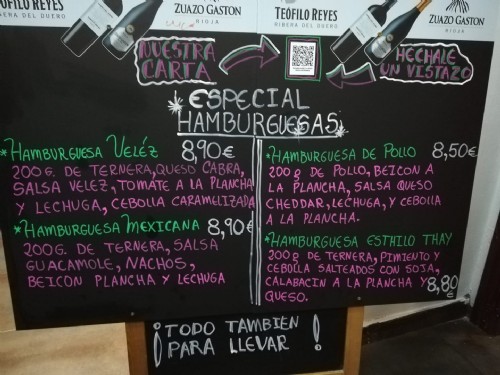 TEÓFILO REYES
RIBERA DEL DUERO
ZUAZO GASTON
RIOJA
TEÓFILO REYES
RIBERA DEL DUERO
ZUAZO GASTON
RIOJA
NUESTRA
CARTA
HECHALE
UN VISTAZO
ESPECIAL
HAMBURGUESAS
*HAMBURGUESA VELÉZ 8,90€
200G. DE TERNERA, QUESO CABRA,
SALSA VELEZ, TOMATE A LA PLANCHA
Y LECHUGA, CEBOLLA CARAMELIZADA
*HAMBURGUESA MEXICANA 8,90€
200G. DE TERNERA, SALSA
GUACAMOLE, NACHOS,
BEICON PLANCHA Y LECHUGA
*HAMBURGUESA DE POLLO 8,50€
200g DE POLLO, BEICON A
LA PLANCHA, SALSA QUESO
CHEDDAR, LECHUGA, Y CEBOLLA
A LA PLANCHA.
*HAMBURGUESA ESTHILO THAY
200g DE TERNERA, PIMIENTO Y
CEBOLLA SALTEADOS CON SOJA,
CALABACIN A LA PLANCHA Y 8,80€
QUESO.
¡TODO TAMBIEN
PARA LLEVAR!